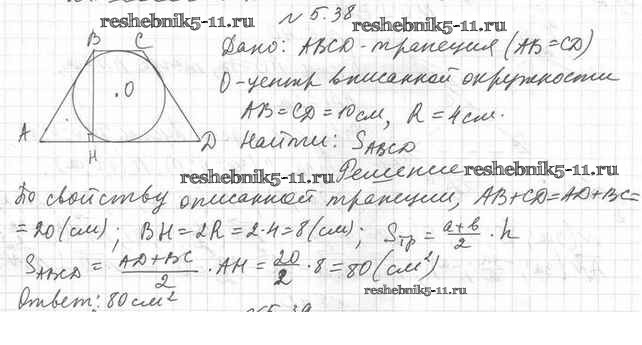 reshebnik5-11.ru
№ 5.38
reshebnik5-11.ru
B C
Дано: ABCD - трапеция (AB=CD)
O
O - центр вписанной окружности
AB=CD=10см, R=4см.
A D
H
Найти: S_ABCD
reshebnik5-11.ru
Решение
reshebnik5-11.ru
По свойству описанной трапеции, AB+CD=AD+BC=
=20(см); BH=2R=2·4=8(см); Sтр=(a+b)/2·h
S_ABCD=(AD+BC)/2·AH=20/2·8=80(см²)
reshebnik5-11.ru
Ответ: 80см²
№5.39